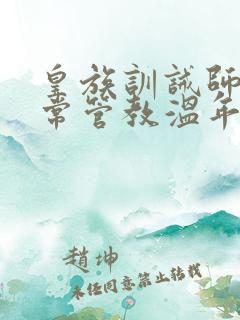 皇族訓誡師
常管教溫年
趙坤
未任同意禁止转载